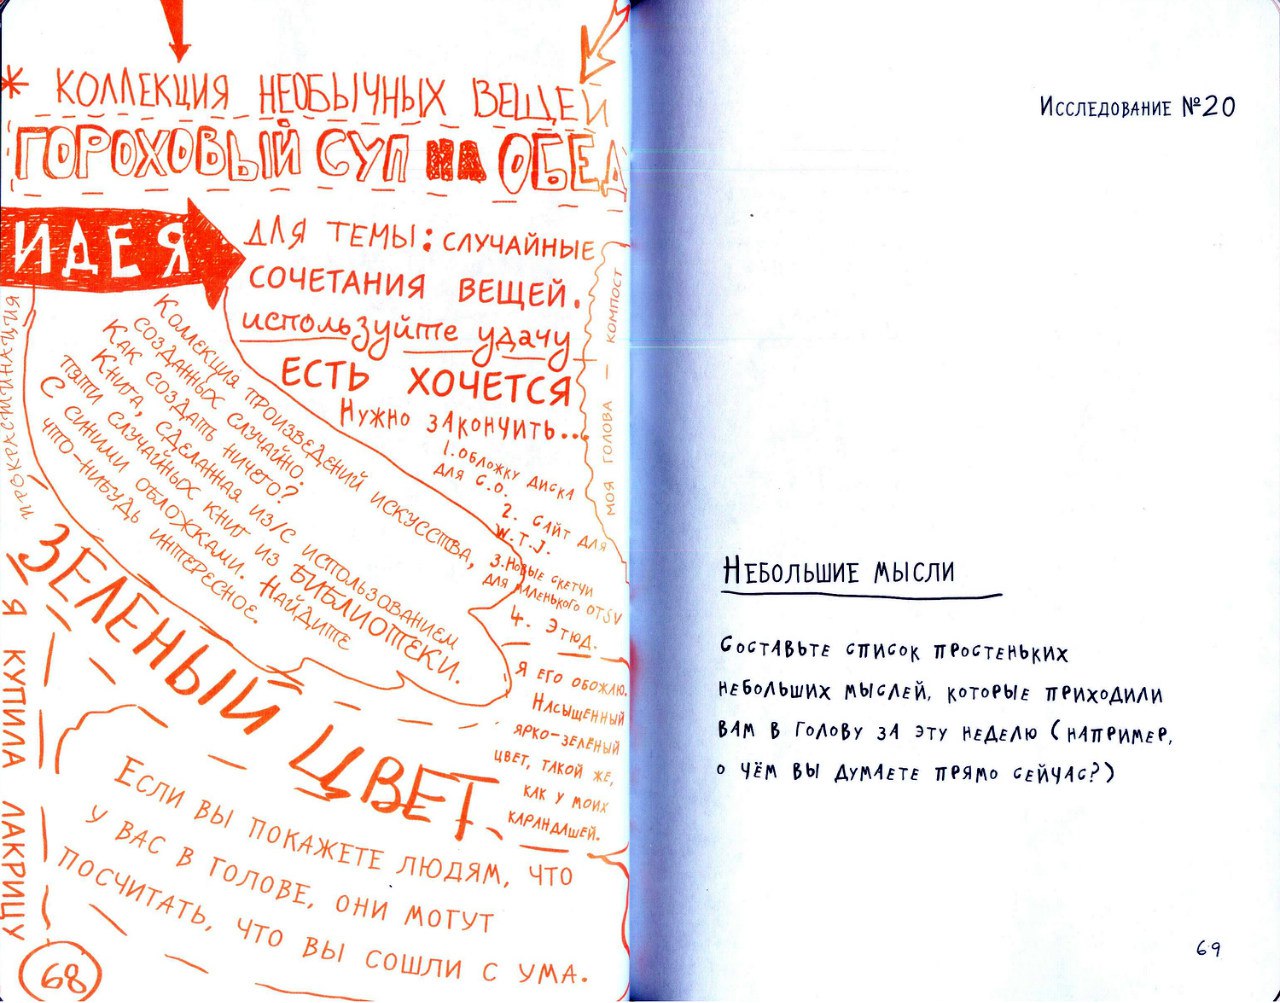 * КОЛЛЕКЦИЯ НЕОБЫЧНЫХ ВЕЩЕЙ
ГОРОХОВЫЙ СУП НА ОБЕД
ИДЕЯ
ДЛЯ ТЕМЫ: СЛУЧАЙНЫЕ
СОЧЕТАНИЯ ВЕЩЕЙ.
используйте удачу
ЕСТЬ ХОЧЕТСЯ
НУЖНО ЗАКОНЧИТЬ...
1. ОБЛОЖКУ ДИСКА
ДЛЯ С.О.
2. САЙТ ДЛЯ
W.T.J.
3. НОВЫЕ СКЕТЧИ
ДЛЯ МАЛЕНЬКОГО OTSV
4. ЭТЮД.
МОЯ ГОЛОВА — КОМПОСТ
ПРОКРАСТИНАЦИЯ
КОЛЛЕКЦИЯ ПРОИЗВЕДЕНИЙ ИСКУССТВА,
СОЗДАННЫХ СЛУЧАЙНО.
КАК СОЗДАТЬ НИЧЕГО?
КНИГА, СДЕЛАННАЯ ИЗ/С ИСПОЛЬЗОВАНИЕМ
ПЯТИ СЛУЧАЙНЫХ КНИГ ИЗ БИБЛИОТЕКИ.
С СИНИМИ ОБЛОЖКАМИ. НАЙДИТЕ
ЧТО-НИБУДЬ ИНТЕРЕСНОЕ.
ЗЕЛЕНЫЙ ЦВЕТ.
Я ЕГО ОБОЖАЮ.
НАСЫЩЕННЫЙ
ЯРКО-ЗЕЛЁНЫЙ
ЦВЕТ, ТАКОЙ ЖЕ,
КАК У МОИХ
КАРАНДАШЕЙ.
Я КУПИЛА ЛАКРИЦУ
ЕСЛИ ВЫ ПОКАЖЕТЕ ЛЮДЯМ, ЧТО
У ВАС В ГОЛОВЕ, ОНИ МОГУТ
ПОСЧИТАТЬ, ЧТО ВЫ СОШЛИ С УМА.
68
ИССЛЕДОВАНИЕ №20
НЕБОЛЬШИЕ МЫСЛИ
СОСТАВЬТЕ СПИСОК ПРОСТЕНЬКИХ
НЕБОЛЬШИХ МЫСЛЕЙ, КОТОРЫЕ ПРИХОДИЛИ
ВАМ В ГОЛОВУ ЗА ЭТУ НЕДЕЛЮ (НАПРИМЕР,
О ЧЁМ ВЫ ДУМАЕТЕ ПРЯМО СЕЙЧАС?)
69